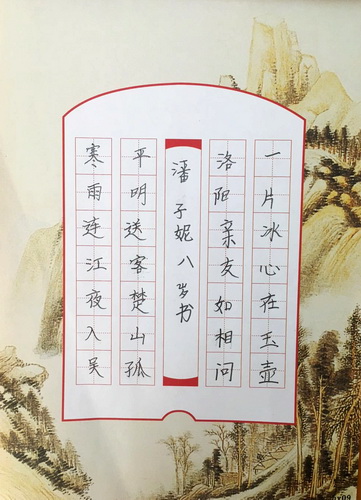 寒雨连江夜入吴
平明送客楚山孤
潘子妮八岁书
洛阳亲友如相问
一片冰心在玉壶